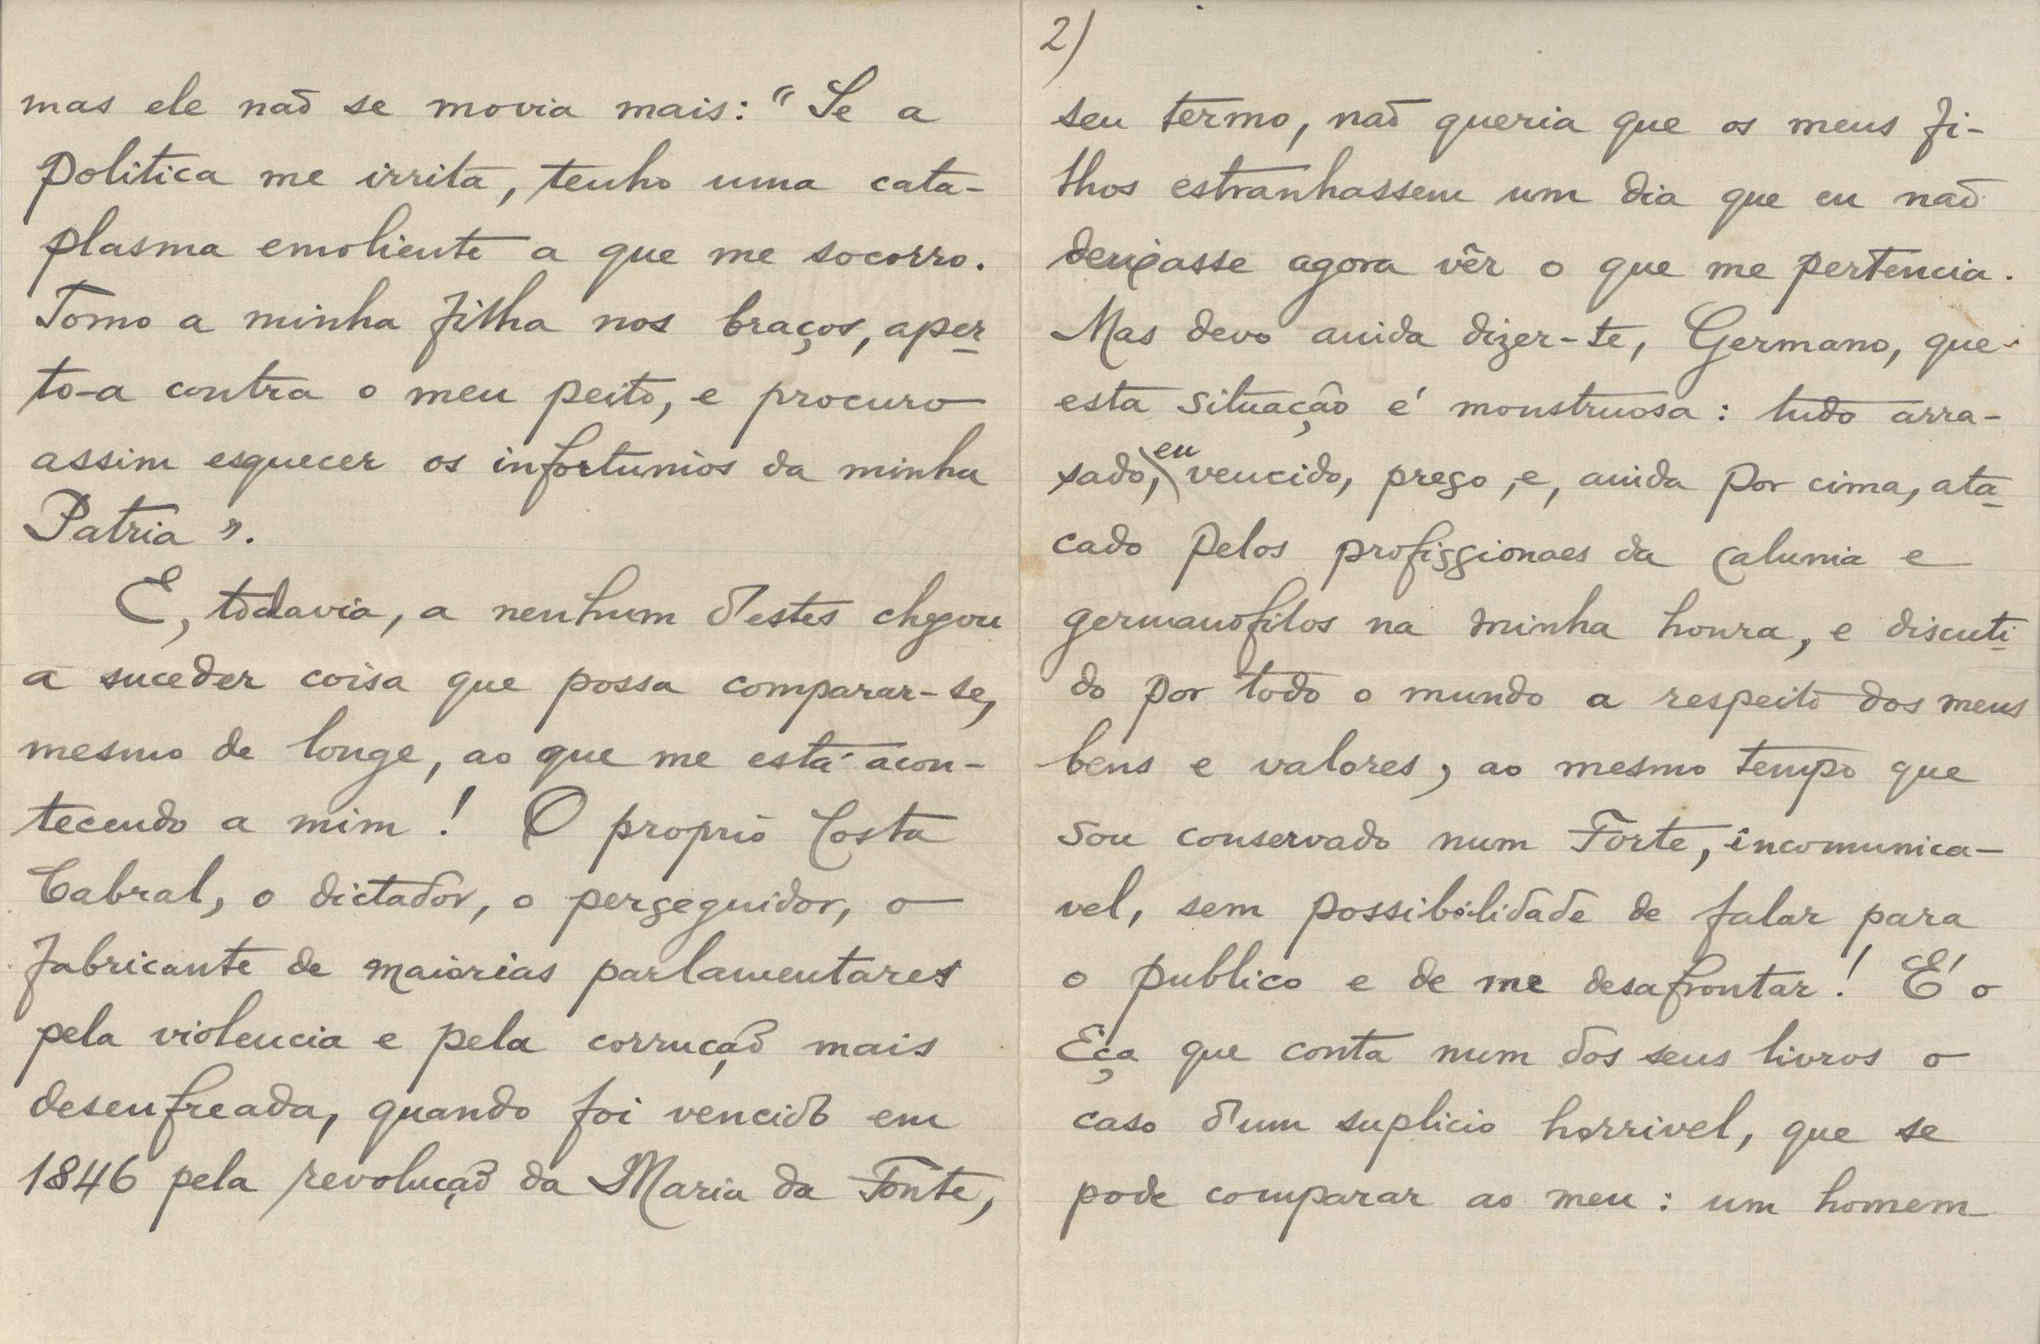 mas ele não se movia mais: "Se a
politica me irrita, tenho uma cata-
plasma emoliente a que me socorro.
Tomo a minha filha nos braços, aper-
to-a contra o meu peito, e procuro
assim esquecer os infortunios da minha
Patria".
E, todavia, a nenhum d'estes chegou
a suceder coisa que possa comparar-se,
mesmo de longe, ao que me está acon-
tecendo a mim! O proprio Costa
Cabral, o dictador, o perseguidor, o
fabricante de maiorias parlamentares
pela violencia e pela corrução mais
desenfreada, quando foi vencido em
1846 pela revolução da Maria da Fonte,
2)
seu termo, não queria que os meus fi-
lhos estranhassem um dia que eu não
deixasse agora vêr o que me pertencia.
Mas devo ainda dizer-te, Germano, que
esta situação é monstruosa: tudo arra-
sado, eu vencido, preso, e, ainda por cima, ata-
cado pelos profissionaes da calunia e
germanofilos na minha honra, e discuti-
do por todo o mundo a respeito dos meus
bens e valores, ao mesmo tempo que
sou conservado num Forte, incomunica-
vel, sem possibilidade de falar para
o publico e de me desafrontar! É o
Eça que conta num dos seus livros o
caso d'um suplicio horrivel, que se
pode comparar ao meu: um homem